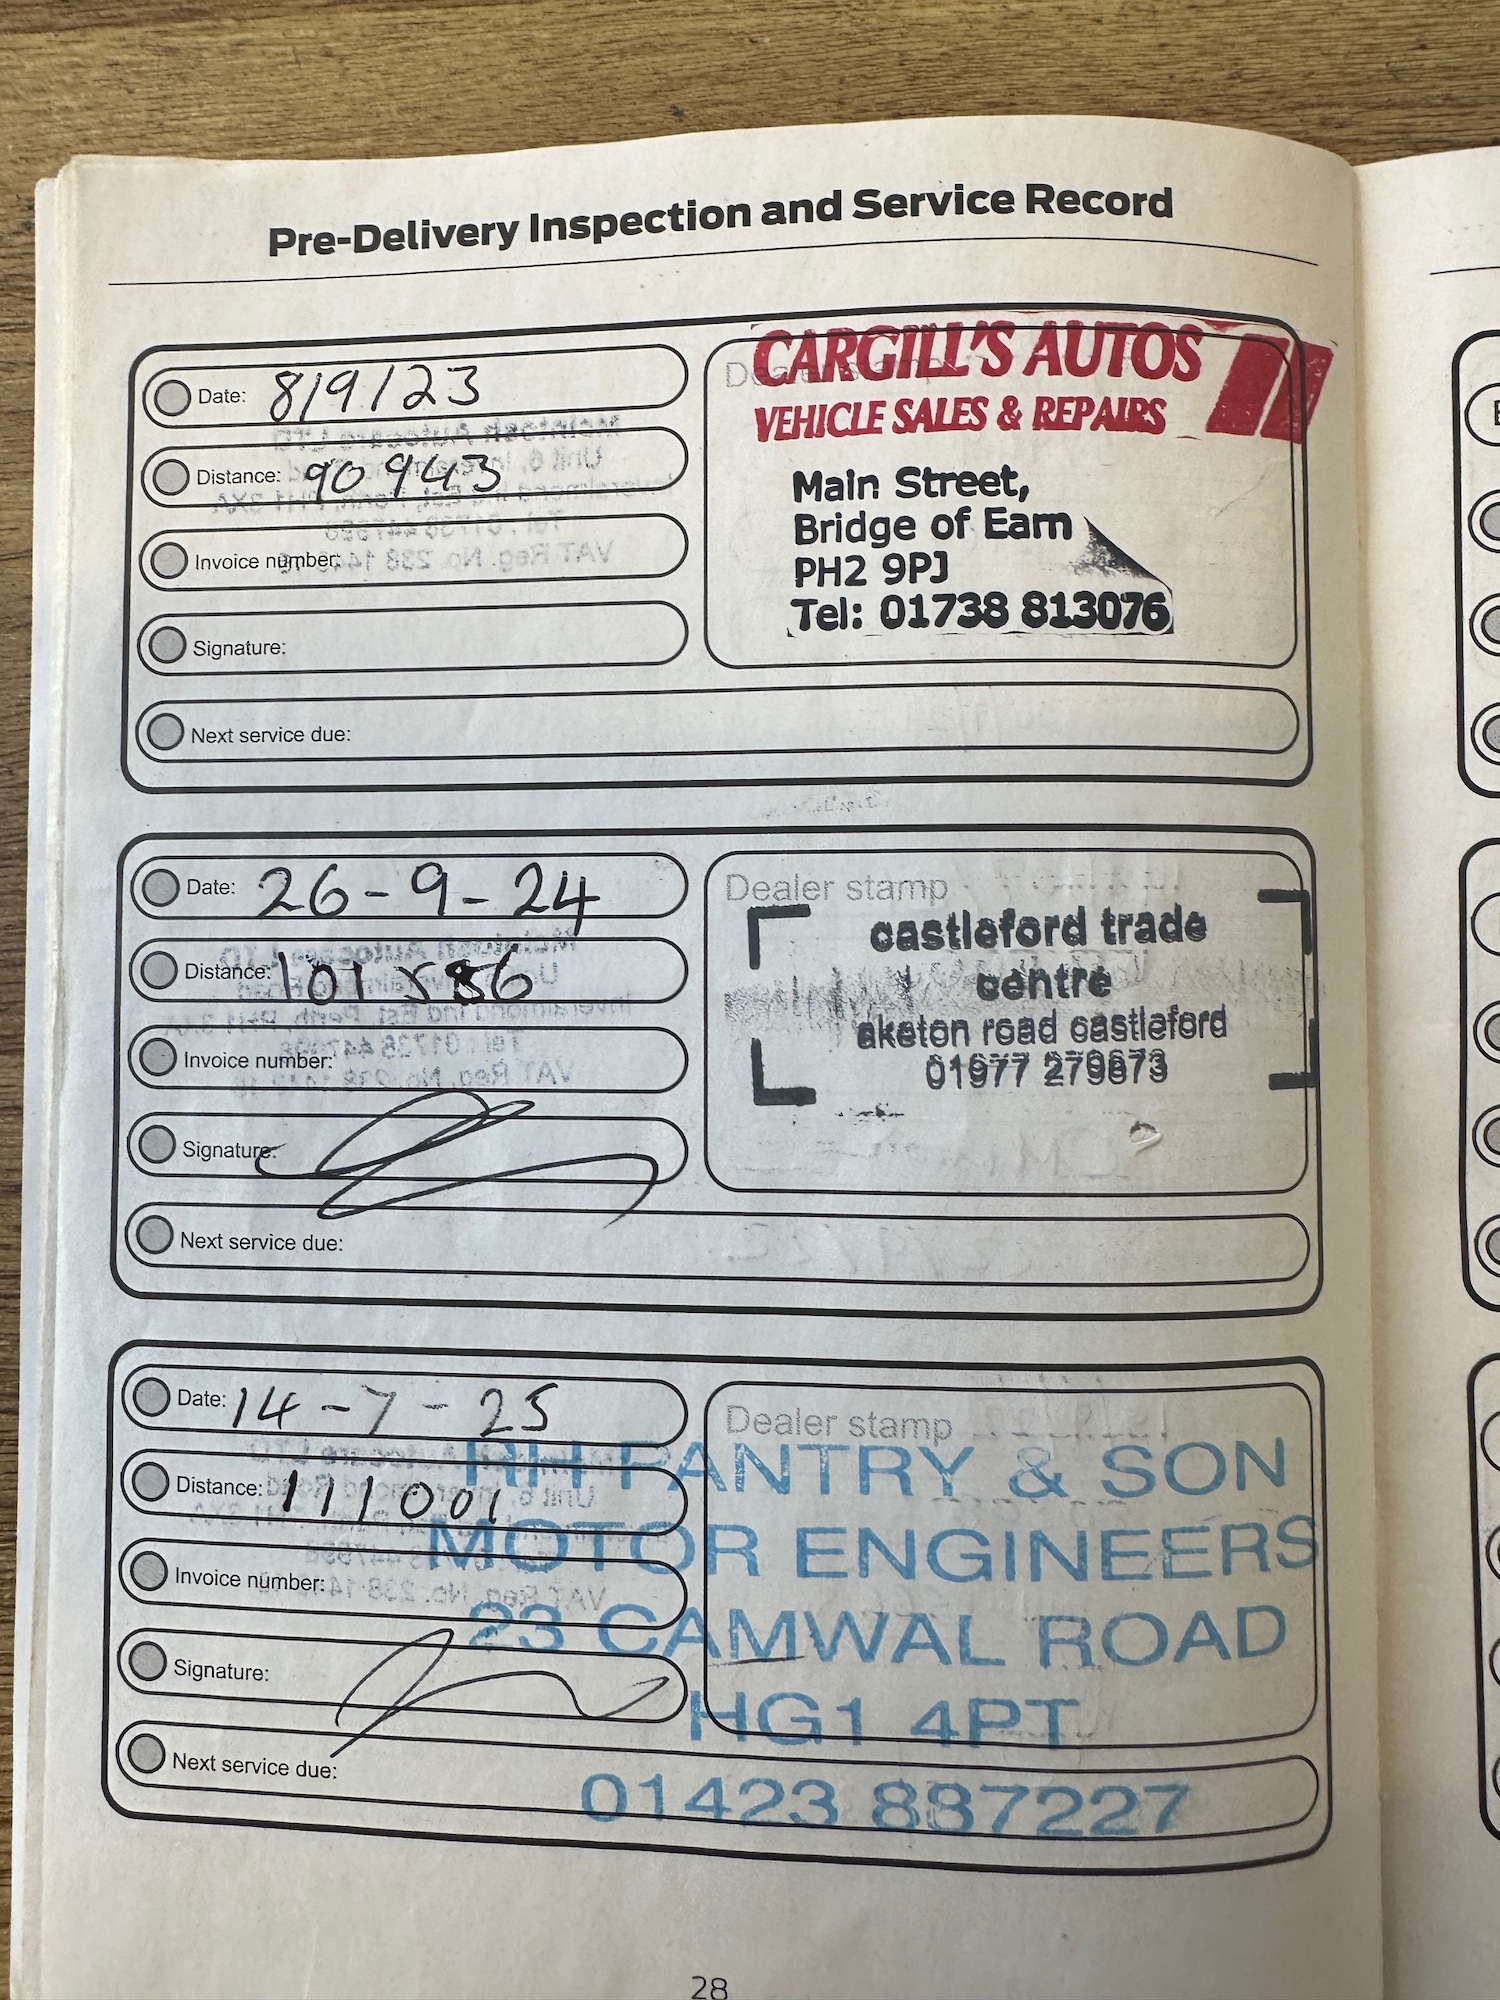 Pre-Delivery Inspection and Service Record
Date: 8/9/23
Distance: 90943
Invoice number:
Signature:
Next service due:
Dealer stamp
CARGILL'S AUTOS
VEHICLE SALES & REPAIRS
Main Street,
Bridge of Earn
PH2 9PJ
Tel: 01738 813076
Date: 26-9-24
Distance:
Invoice number:
Signature:
Next service due:
Dealer stamp
castleford trade
centre
aketon road castleford
01977 279873
Date: 14-7-25
Distance: 111001
Invoice number:
Signature:
Next service due:
Dealer stamp
RH PANTRY & SON
MOTOR ENGINEERS
23 CAMWAL ROAD
HG1 4PT
01423 887227
28